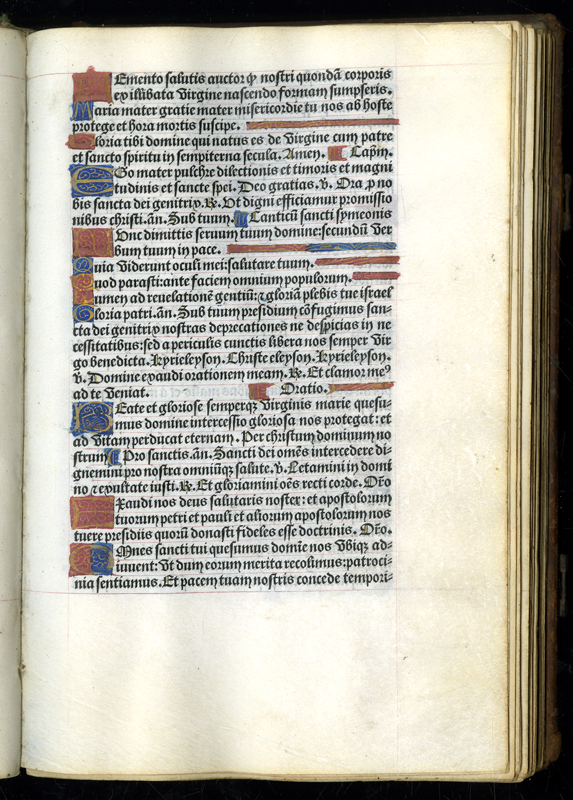 Memento salutis auctor qꝫ nostri quondã corporis
ex illibata virgine nascendo formam sumpseris.
Maria mater gratie mater misericordie tu nos ab hoste
protege et hora mortis suscipe.
Gloria tibi domine qui natus es de virgine cum patre
et sancto spiritu in sempiterna secula. Amen. Capĩm.
EGo mater pulchre dilectionis et timoris et magni
tudinis et sancte spei. Deo gratias. ꝟ. Ora ꝓ no
bis sancta dei genitrix. ℟. Ut digni efficiamur promissio
nibus christi. ãn. Sub tuum. Canticũ sancti symeonis
NUnc dimittis seruum tuum domine: secundũ ver
bum tuum in pace.
Quia viderunt oculi mei: salutare tuum.
Quod parasti: ante faciem omnium populorum.
Lumen ad reuelationẽ gentiũ: ⁊ gloriã plebis tue israel
Gloria patri. ãn. Sub tuum presidium cõfugimus san-
cta dei genitrix nostras deprecationes ne despicias in ne
cessitatibus: sed a periculis cunctis libera nos semper vir
go benedicta. Kyrieleyson. Christe eleyson. Kyrieleyson.
ꝟ. Domine exaudi orationem meam. ℟. Et clamor meꝰ
ad te veniat. Oratio.
BEate et gloriose semperqꝫ virginis marie quesu-
mus domine intercessio gloriosa nos protegat: et
ad vitam perducat eternam. Per christum dominum no
strum Pro sanctis. ãn. Sancti dei omẽs intercedere di-
gnemini pro nostra omniũqꝫ salute. ꝟ. Letamini in domi
no ⁊ exultate iusti. ℟. Et gloriamini oẽs recti corde. Or̃o
EXaudi nos deus salutaris noster: et apostolorum
tuorum petri et pauli et aliorum apostolorum nos
tuere presidiis quorũ donasti fideles esse doctrinis. Or̃o.
OMnes sancti tui quesumus domĩe nos vbiqꝫ ad-
iuuent: vt dum eorum merita recolimus: patroci-
nia sentiamus. Et pacem tuam nostris concede tempori-